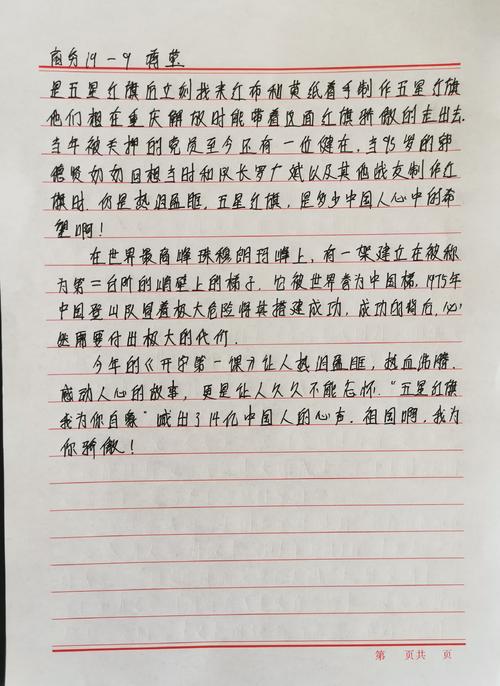 商务19-9 蒋莹
是五星红旗后立刻找来红布和黄纸着手制作五星红旗
他们想在重庆解放时能带着这面红旗骄傲的走出去.
当年被关押的党员至今还有一位健在,当95岁的郭
德贤奶奶回想当时和队长罗广斌以及其他战友制作红
旗时.仍是热泪盈眶.五星红旗,是多少中国人心中的希
望啊!
在世界最高峰珠穆朗玛峰上,有一架建立在被称
为第二台阶的峭壁上的梯子.它被世界誉为中国梯,1975年
中国登山队冒着极大危险将其搭建成功.成功的背后,必
然需要付出极大的代价.
今年的《开学第一课》让人热泪盈眶,热血沸腾.
感动人心的故事,更是让人久久不能忘怀."五星红旗
我为你自豪"喊出了14亿中国人的心声.祖国啊,我为
你骄傲!
第 页共 页